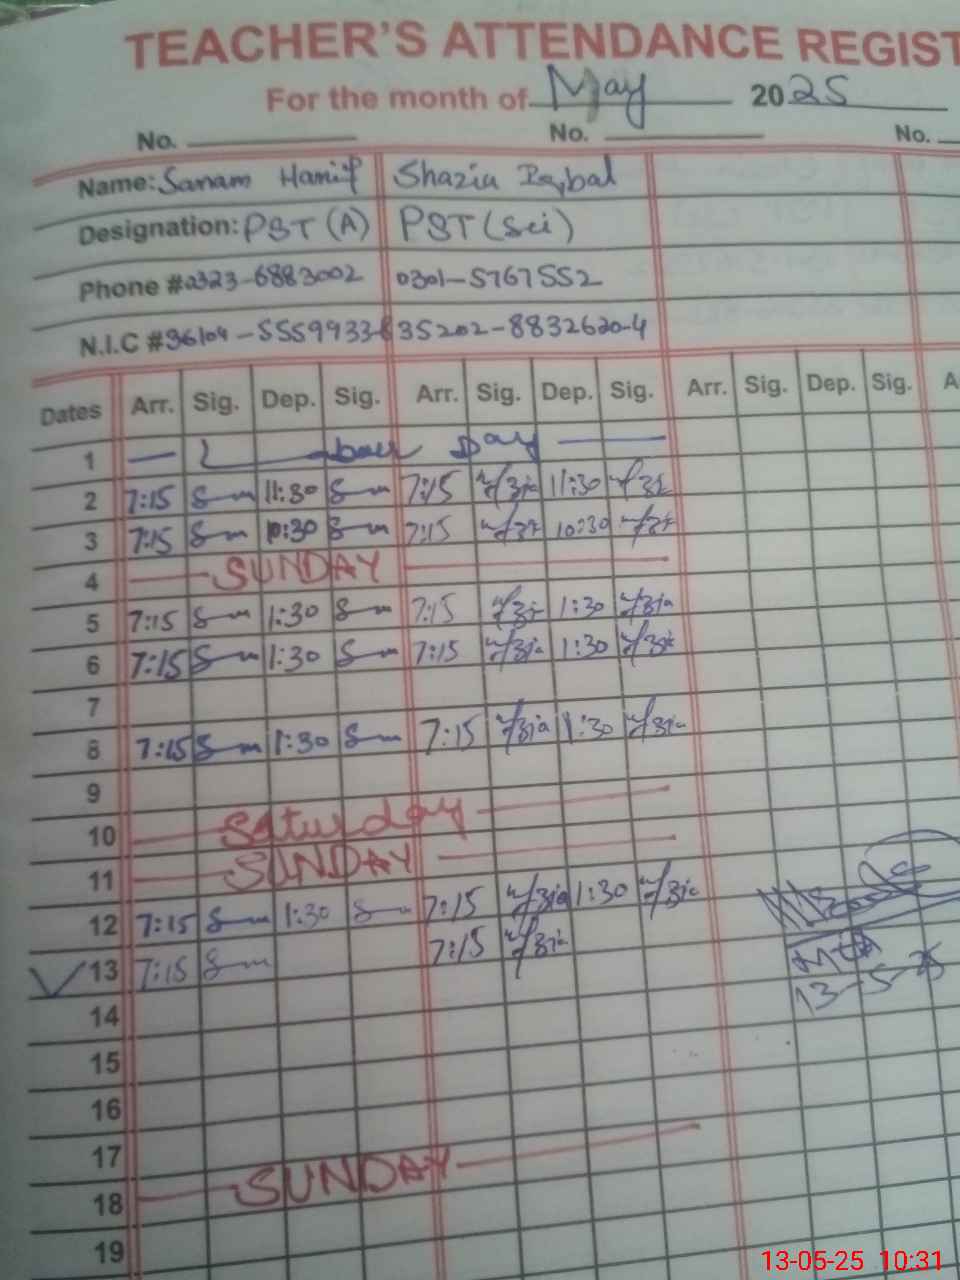 TEACHER'S ATTENDANCE REGIST
For the month of May 2025
No. No. No.
Name: Sanam Hanif Shazia Iqbal
Designation: PST (A) PST (Sci)
Phone # 0323-6883002 0301-5767552
N.I.C # 36104-5559933-8 35202-8832620-4
Dates Arr. Sig. Dep. Sig. Arr. Sig. Dep. Sig. Arr. Sig. Dep. Sig. A
1 Labour Day
2 7:15 11:30 7:15 11:30
3 7:15 10:30 7:15 10:30
4 SUNDAY
5 7:15 1:30 7:15 1:30
6 7:15 1:30 7:15 1:30
7
8 7:15 1:30 7:15 1:30
9
10 Saturday
11 SUNDAY
12 7:15 1:30 7:15 1:30
13 7:15 7:15
13-5-25
14
15
16
17
18 SUNDAY
19
13-05-25 10:31